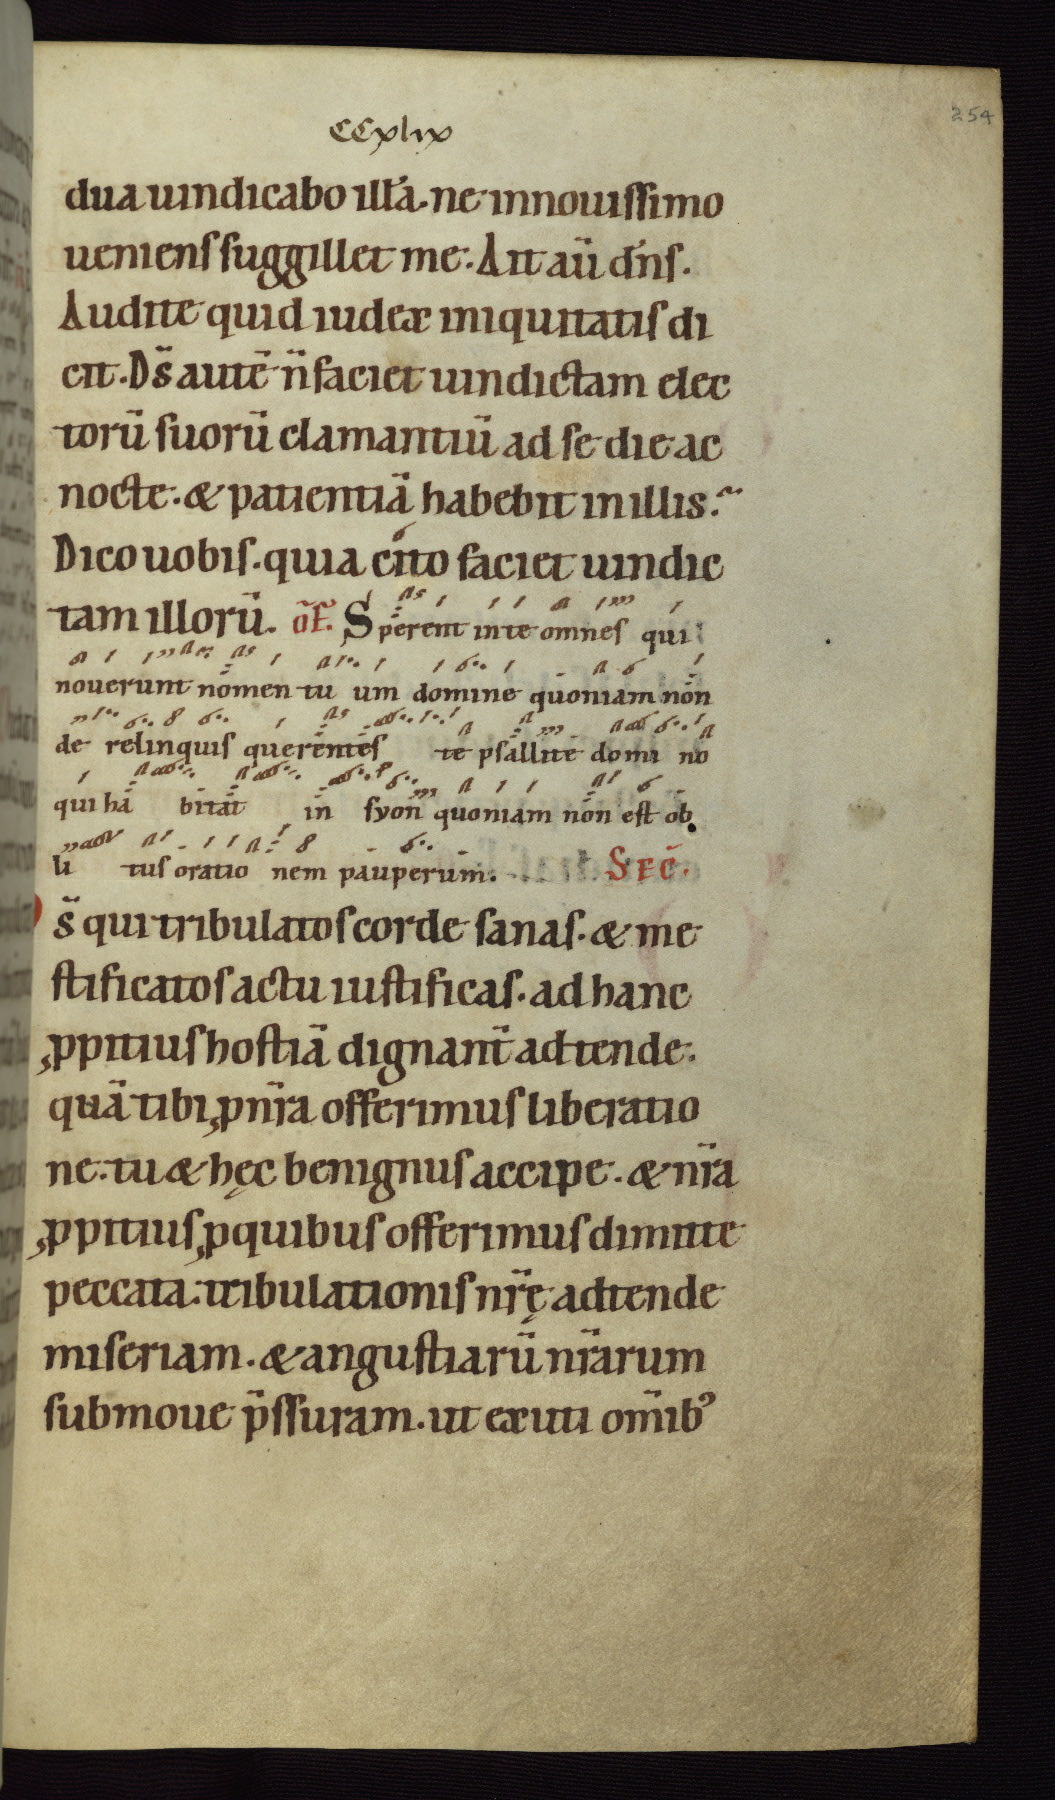 254
CCxlix
dua uindicabo illā. ne innouissimo
ueniens suggillet me. Ait aū dn̄s.
Audite quid iudex iniquitatis di
cit. Ds̄ autē n̄ faciet uindictam elec
torū suorū clamantiū ad se die ac
nocte. & patientiā habebit in illis.
Dico uobis. quia cito faciet uindic
tam illorū. of̄. Sperent in te omnes qui
nouerunt nomen tu um domine quoniam non
de relinquis querentes te psallite domi no
qui hā bitat in syon quoniam non est ob
li tus oratio nem pauperum. Sec̄.
s̄ qui tribulatos corde sanas. & me
stificatos actu iustificas. ad hanc
ꝓpitius hostiā dignant̄ adtende.
quā tibi ꝓ nr̄a offerimus liberatio
ne. tu & hęc benignus accipe. & nr̄a
ꝓpitius ꝓ quibus offerimus dimitte
peccata. tribulationis nr̄ę adtende
miseriam. & angustiarū nr̄arum
submoue p̄ssuram. ut exuti om̄ibꝰ